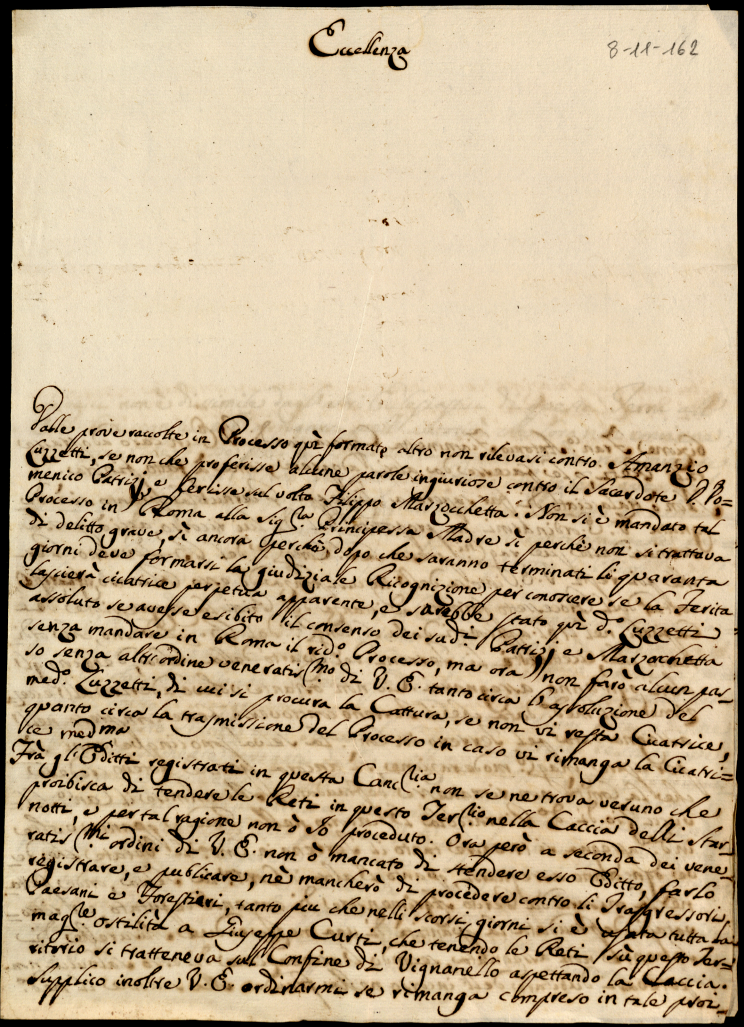 Eccellenza
8-11-162
Dalle prove raccolte in Processo quì formato altro non rilevasi contro Amanzio
Luzzetti, se non che proferisse alcune parole ingiuriose contro il Sacerdote D. Do=
menico Patrizj, e ferisse sul volto Filippo Marzocchetta. Non si è mandato tal
Processo in Roma alla Sigra Principessa Madre sì perchè non si trattava
di delitto grave, sì ancora perchè, dopo che saranno terminati li quaranta
giorni deve formarsi la giudiziale Ricognizione per conoscere se la ferita
lascierà cicatrice perpetua apparente, e sarebbe stato quì do Luzzetti
assoluto se avesse esibito il consenso dei sudi Patrizj, e Marzocchetta
senza mandare in Roma il rido Processo, ma ora non farò alcun pas=
so senza altri ordine veneratismo di V. E. tanto circa l'assoluzione del
medo Luzzetti, di cui si procura la Cattura, se non vi resta Cicatrice,
quanto circa la trasmissione del Processo in caso vi rimanga la Cicatri=
ce medma
Frà gl'Editti registrati in questa Cancria non se ne trova veruno che
proibisca di tendere le Reti in questo Terrio nella Caccia delli Star=
notti, e per tal ragione non ò Io proceduto. Ora però a seconda dei vene=
ratismi ordini di V. E. non ò mancato di stendere esso Editto, farlo
registrare, e publicare, nè mancherò di procedere contro li Trasgressori,
Paesani e Forestieri, tanto piu che nelli scorsi giorni si è usata tutta la
magre ostilità a Giuseppe Curti, che tenendo le Reti sù questo Ter=
ritorio si tratteneva sul Confine di Vignanello aspettando la Caccia.
Supplico inoltre V. E. ordinarmi se rimanga compreso in tale proi=